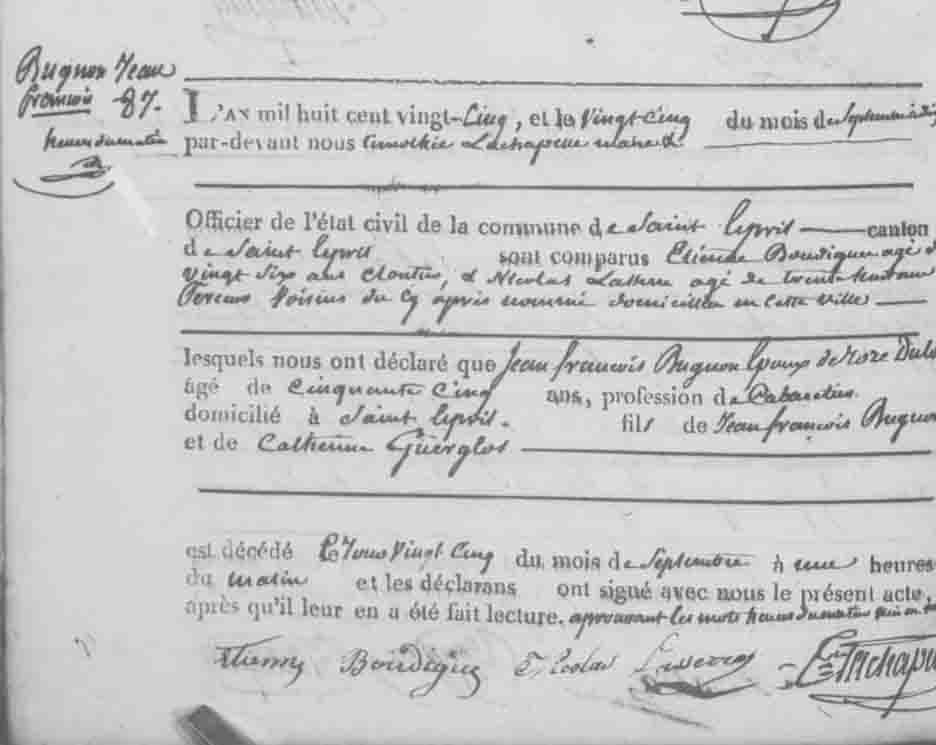 Bugnon Jean
francois 87.
heures du matin
L'AN mil huit cent vingt-Cinq, et le Vingt Cinq du mois de Septembre à dix
par-devant nous timothée Lachapelle maire &.
Officier de l'état civil de la commune de Saint Cyprit canton
de Saint Cyprit sont comparus Etienne Bourdiguer agé d
vingt Six ans Cloutier, & Nicolas agé de trente huit ans
Voisins du Cy après nommé domiciliés en Cette Ville
lesquels nous ont déclaré que Jean francois Bugnon Epoux de Roze
âgé de Cinquante Cinq ans, profession de Cabaretier.
domicilié à Saint Cyprit. fils de Jean françois Bugnon
et de Catherine Guerglos
est décédé Ce Jour Vingt Cinq du mois de Septembre à une heures
du matin et les déclarans ont signé avec nous le présent acte,
après qu'il leur en a été fait lecture. aprouvant les mots heures du matin
Etienne Bourdigue Nicolas Lachape